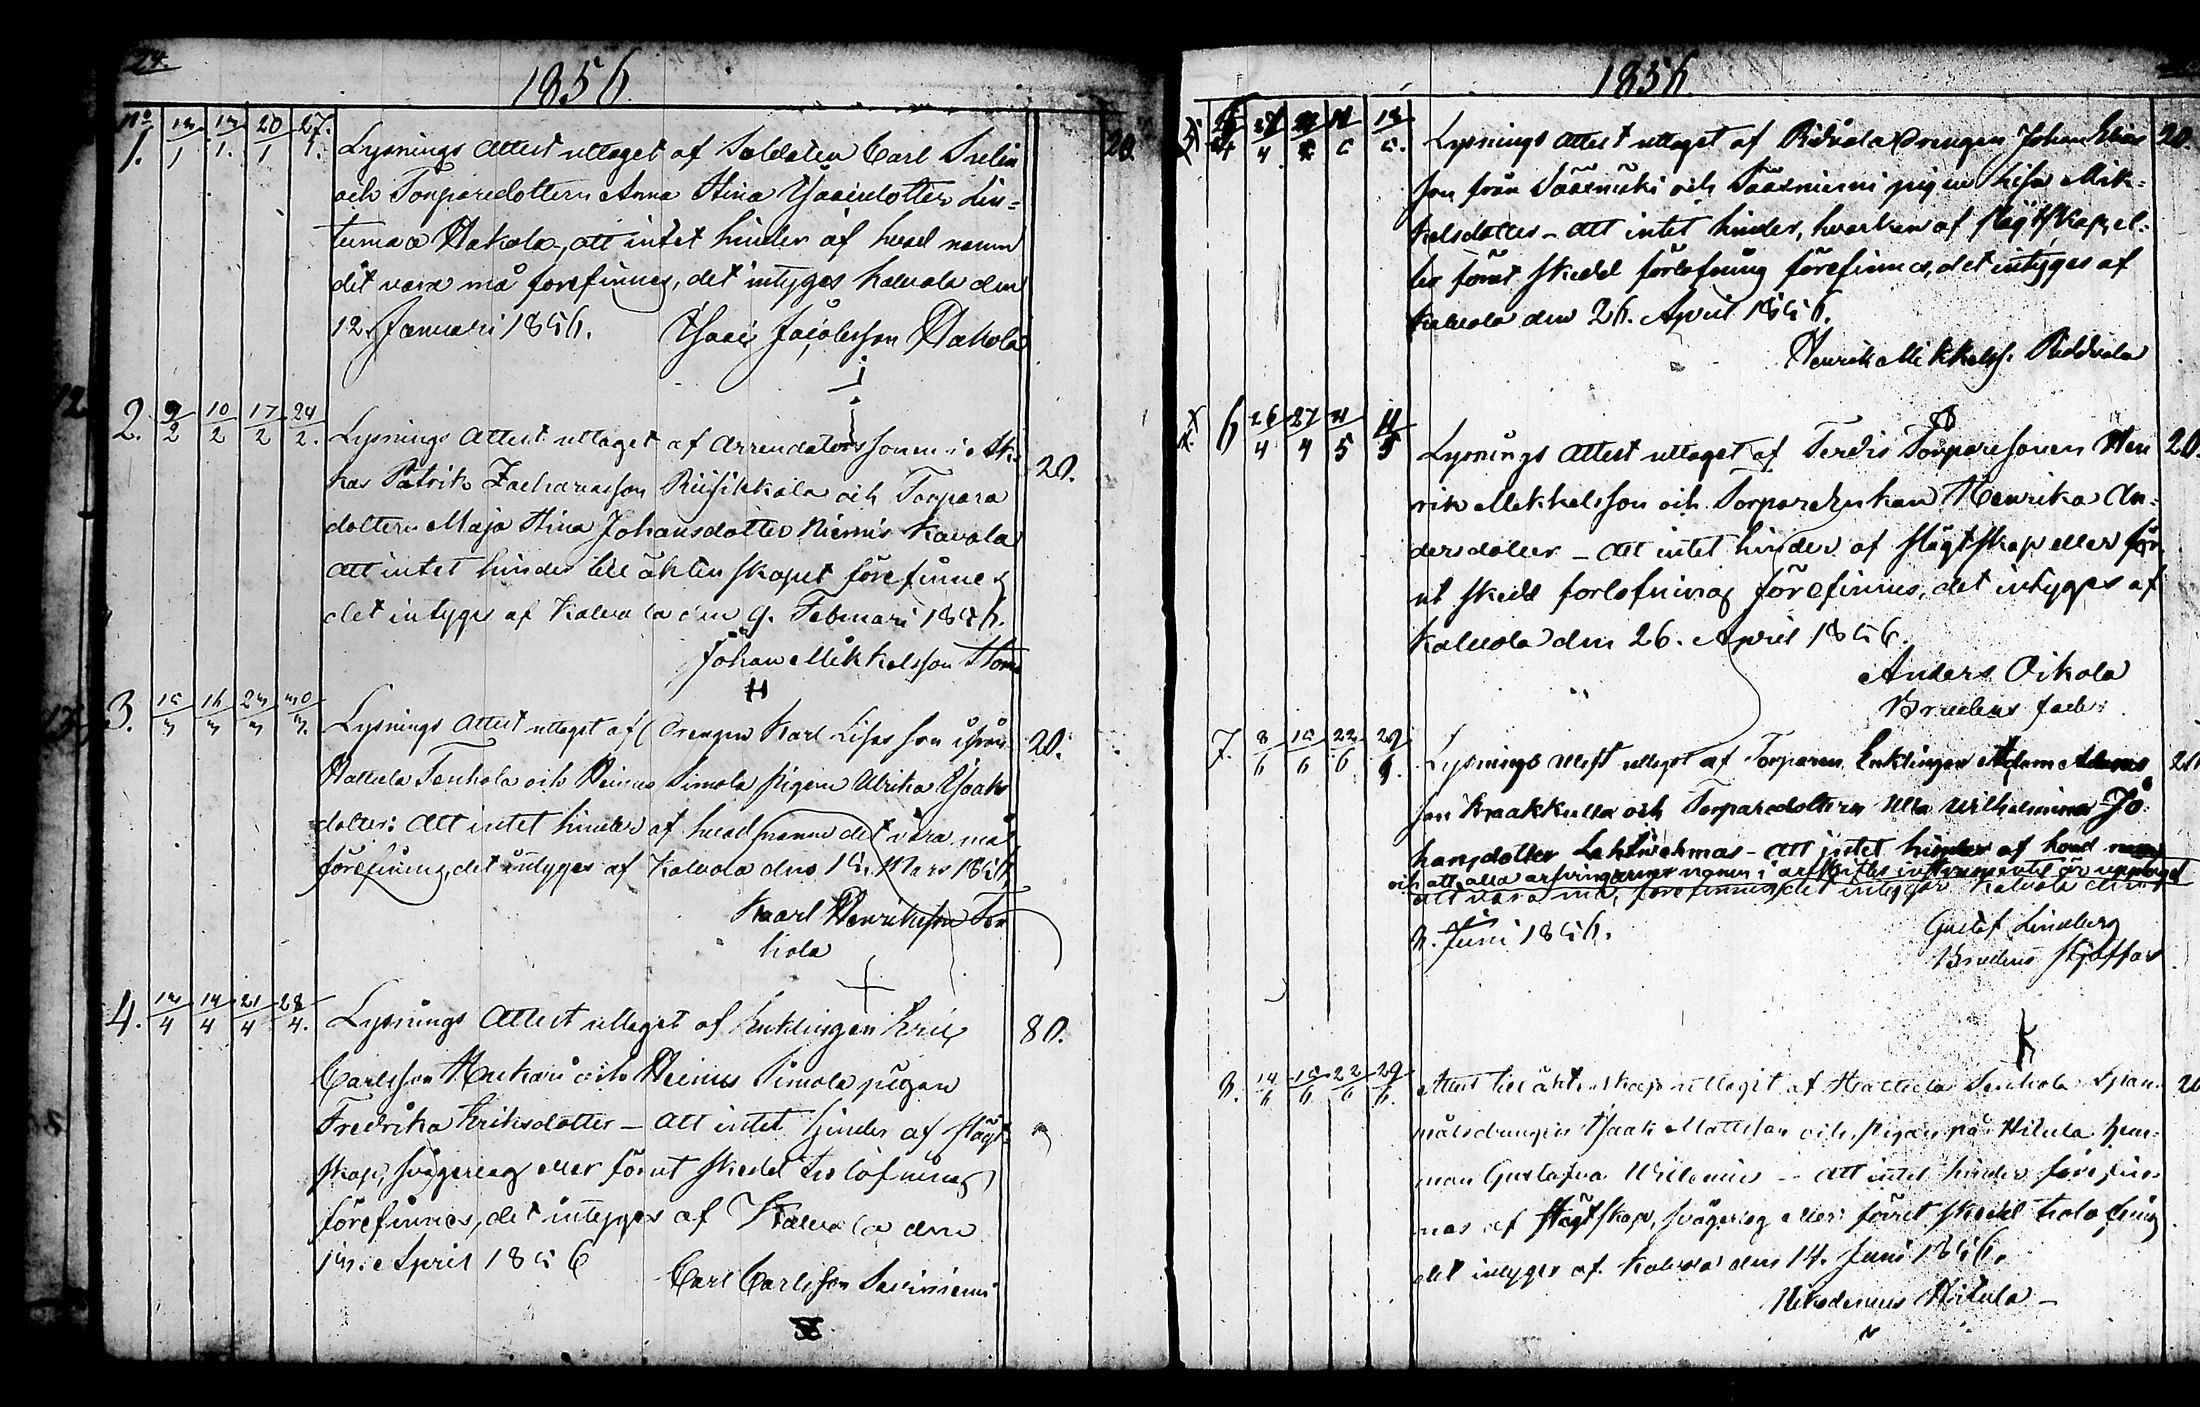 24.
1856.
No 1. 13/1 13/1. 20/1 27./1. Lysnings Attest uttaget af Soldaten Carl
och Torparedottern Anna Stina Isaacsdotter Lin=
tumaa Hakola, att intet hinder af hvad namn
det vara må forefinnes, det intyges Kalvola den
12. Januari 1856. Isaac Jacobsson Hakola
20.
2. 9/2 10/2 17/2 24/2. Lysnings Attest uttaget af Arrendators sonen
Patrik Zachariasson Riisikkala och Torpare
dottern Maja Stina Johansdotter Niemis Kavola
Att intet hinder till äktenskapet förefinnes
det intyges af Kalvola den 9. Februari 1856.
Johan Mikkelsson
20.
3. 15/3 16/3 23/3 30/3. Lysnings Attest uttaget af Drengen Karl ifrån
Hattula Tenhola och Heinus Simola pigan Ulrika Isaks
dotter: Att intet hinder af hvad namn det vara må
förefinnes, det intyges af Kalvola den 15. Mars 1856
Kaarl Henriksson Ten
hola
20.
4. 13/4 14/4 21/4 28/4. Lysnings Attest uttaget af Enklingen Eric
Carlsson och Heinus Simola pigan
Fredrika Eriksdotter – Att intet hinder af slägt=
skap, svågerlag eller förut skedd trolofning
förefinnes, det intyges af Kalvola den
13. April 1856
Carl Carlsson
80.
1856.
5 Lysnings Attest uttaget af Ridvala Drengen Johan
son från Sääxmäki och Sääxniemi pigan Lisa Mik=
kelsdotter – Att intet hinder, hvarken af slägtskap, el=
ler förut skedd förlofning förefinnes, det intyges af
Kalvola den 26. April 1856.
Henrik Mikkelss. Ridvala
20.
6 26/4 27/4 4/5 11/5 Lysnings Attest uttaget af Torparesonen Hen
rik Mikkelsson och Torpare Enkan Henrika An=
dersdotter – Att intet hinder af slägtskap eller för
ut skedd forlofning förefinnes, det intyges af
Kalvola den 26. April 1856.
Anders Oikola
Brudens fader
20.
7. 8/6 15/6 22/6 29/6. Lysnings Attest uttaget af Torparen Enklingen Adam Adams
son Kraakkulla och Torparedottern Ulla Wilhelmina Jo=
hansdotter – Att intet hinder af hvad namn
och att alla arfvingarnes namn i arfskiftes instrumentet är upptaget
det vara må, förefinnes, det intyges Kalvola den
8. Juni 1856.
Gustaf Lindberg
Brudens Styffar
8. 14/6 15/6 22/6 29/6. Attest till äktenskap uttaget af Hattula Tenhola Span
målsdrengen Isaak Mattsson och pigan på Hitula hem=
man Gustafva – Att intet hinder förefin=
nas af slägtskap, svågerlag eller förut skedd trolofning
det intyges af Kalvola den 14. Juni 1856.
Nikodemus Hitula –